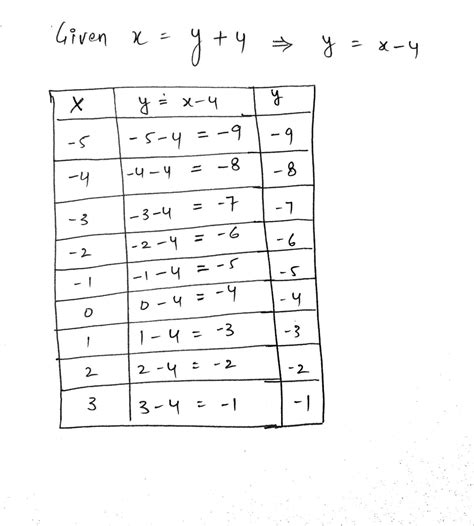 Given x = y + 4 ⇒ y = x-4
X y = x-4 y
-5 -5-4 = -9 -9
-4 -4-4 = -8 -8
-3 -3-4 = -7 -7
-2 -2-4 = -6 -6
-1 -1-4 = -5 -5
0 0-4 = -4 -4
1 1-4 = -3 -3
2 2-4 = -2 -2
3 3-4 = -1 -1